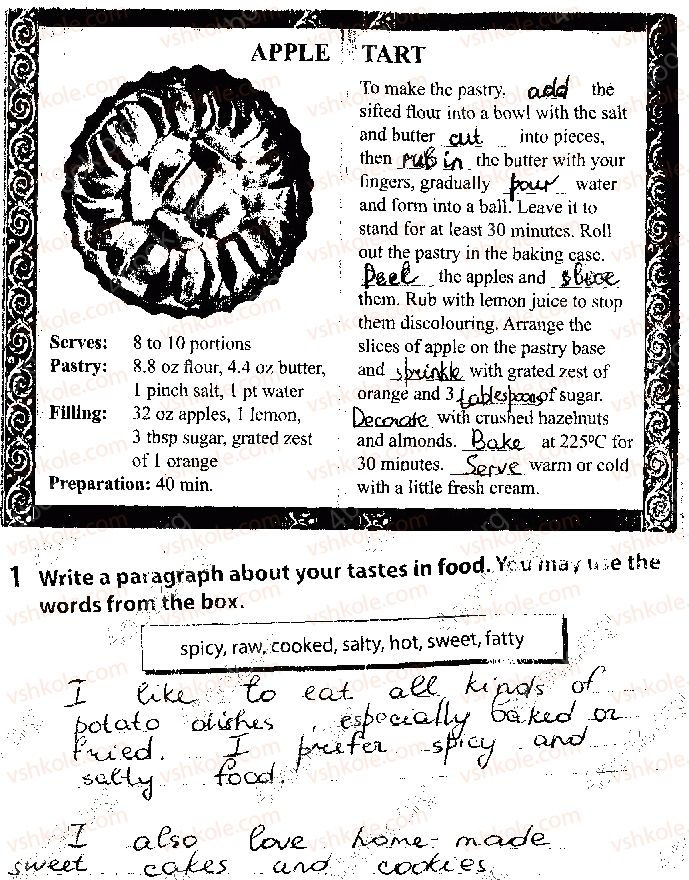 APPLE TART
To make the pastry. add the
sifted flour into a bowl with the salt
and butter cut into pieces,
then rub in the butter with your
fingers, gradually pour water
and form into a ball. Leave it to
stand for at least 30 minutes. Roll
out the pastry in the baking case.
Peel the apples and slice
them. Rub with lemon juice to stop
them discolouring. Arrange the
slices of apple on the pastry base
and sprinkle with grated zest of
orange and 3 tablespoons of sugar.
Decorate with crushed hazelnuts
and almonds. Bake at 225ºC for
30 minutes. Serve warm or cold
with a little fresh cream.
Serves: 8 to 10 portions
Pastry: 8.8 oz flour, 4.4 oz butter,
1 pinch salt, 1 pt water
Filling: 32 oz apples, 1 lemon,
3 tbsp sugar, grated zest
of 1 orange
Preparation: 40 min.
1 Write a paragraph about your tastes in food. You may use the
words from the box.
spicy, raw, cooked, salty, hot, sweet, fatty
I like to eat all kinds of
potato dishes, especially baked or
fried. I prefer spicy and
salty food.
I also love home-made
sweet cakes and cookies.
vshkole.com